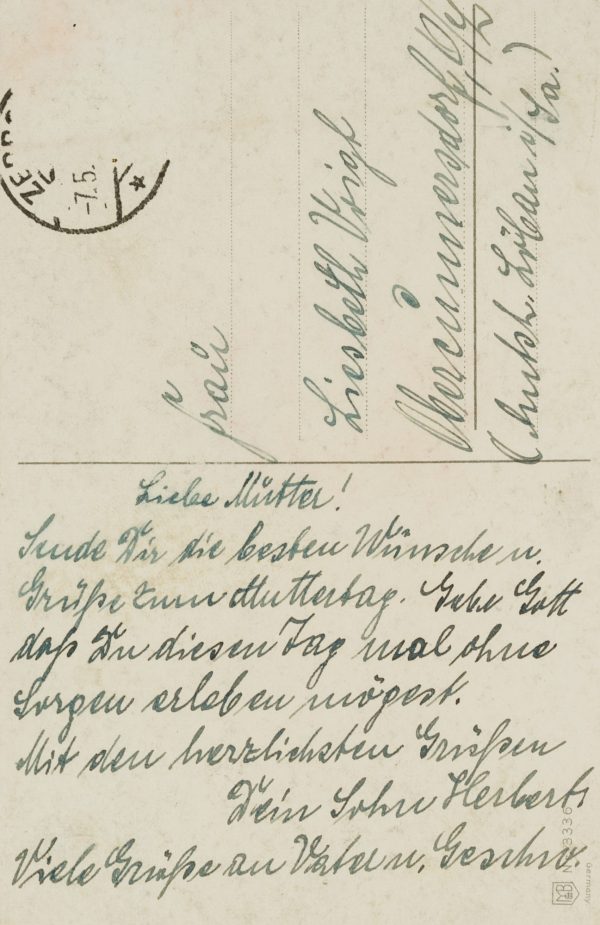 Liebe Mutter!
Sende Dir die besten Wünsche u.
Grüße zum Muttertag. Gebe Gott
daß Du diesen Tag mal ohne
Sorgen erleben mögest.
Mit den herzlichsten Grüßen
Dein Sohn Herbert
Viele Grüße an Vater u. Geschw.
Frau
Liesbeth Voigt
Obercunnersdorf
Löbau i/Sa.)
-7.5.
Germany